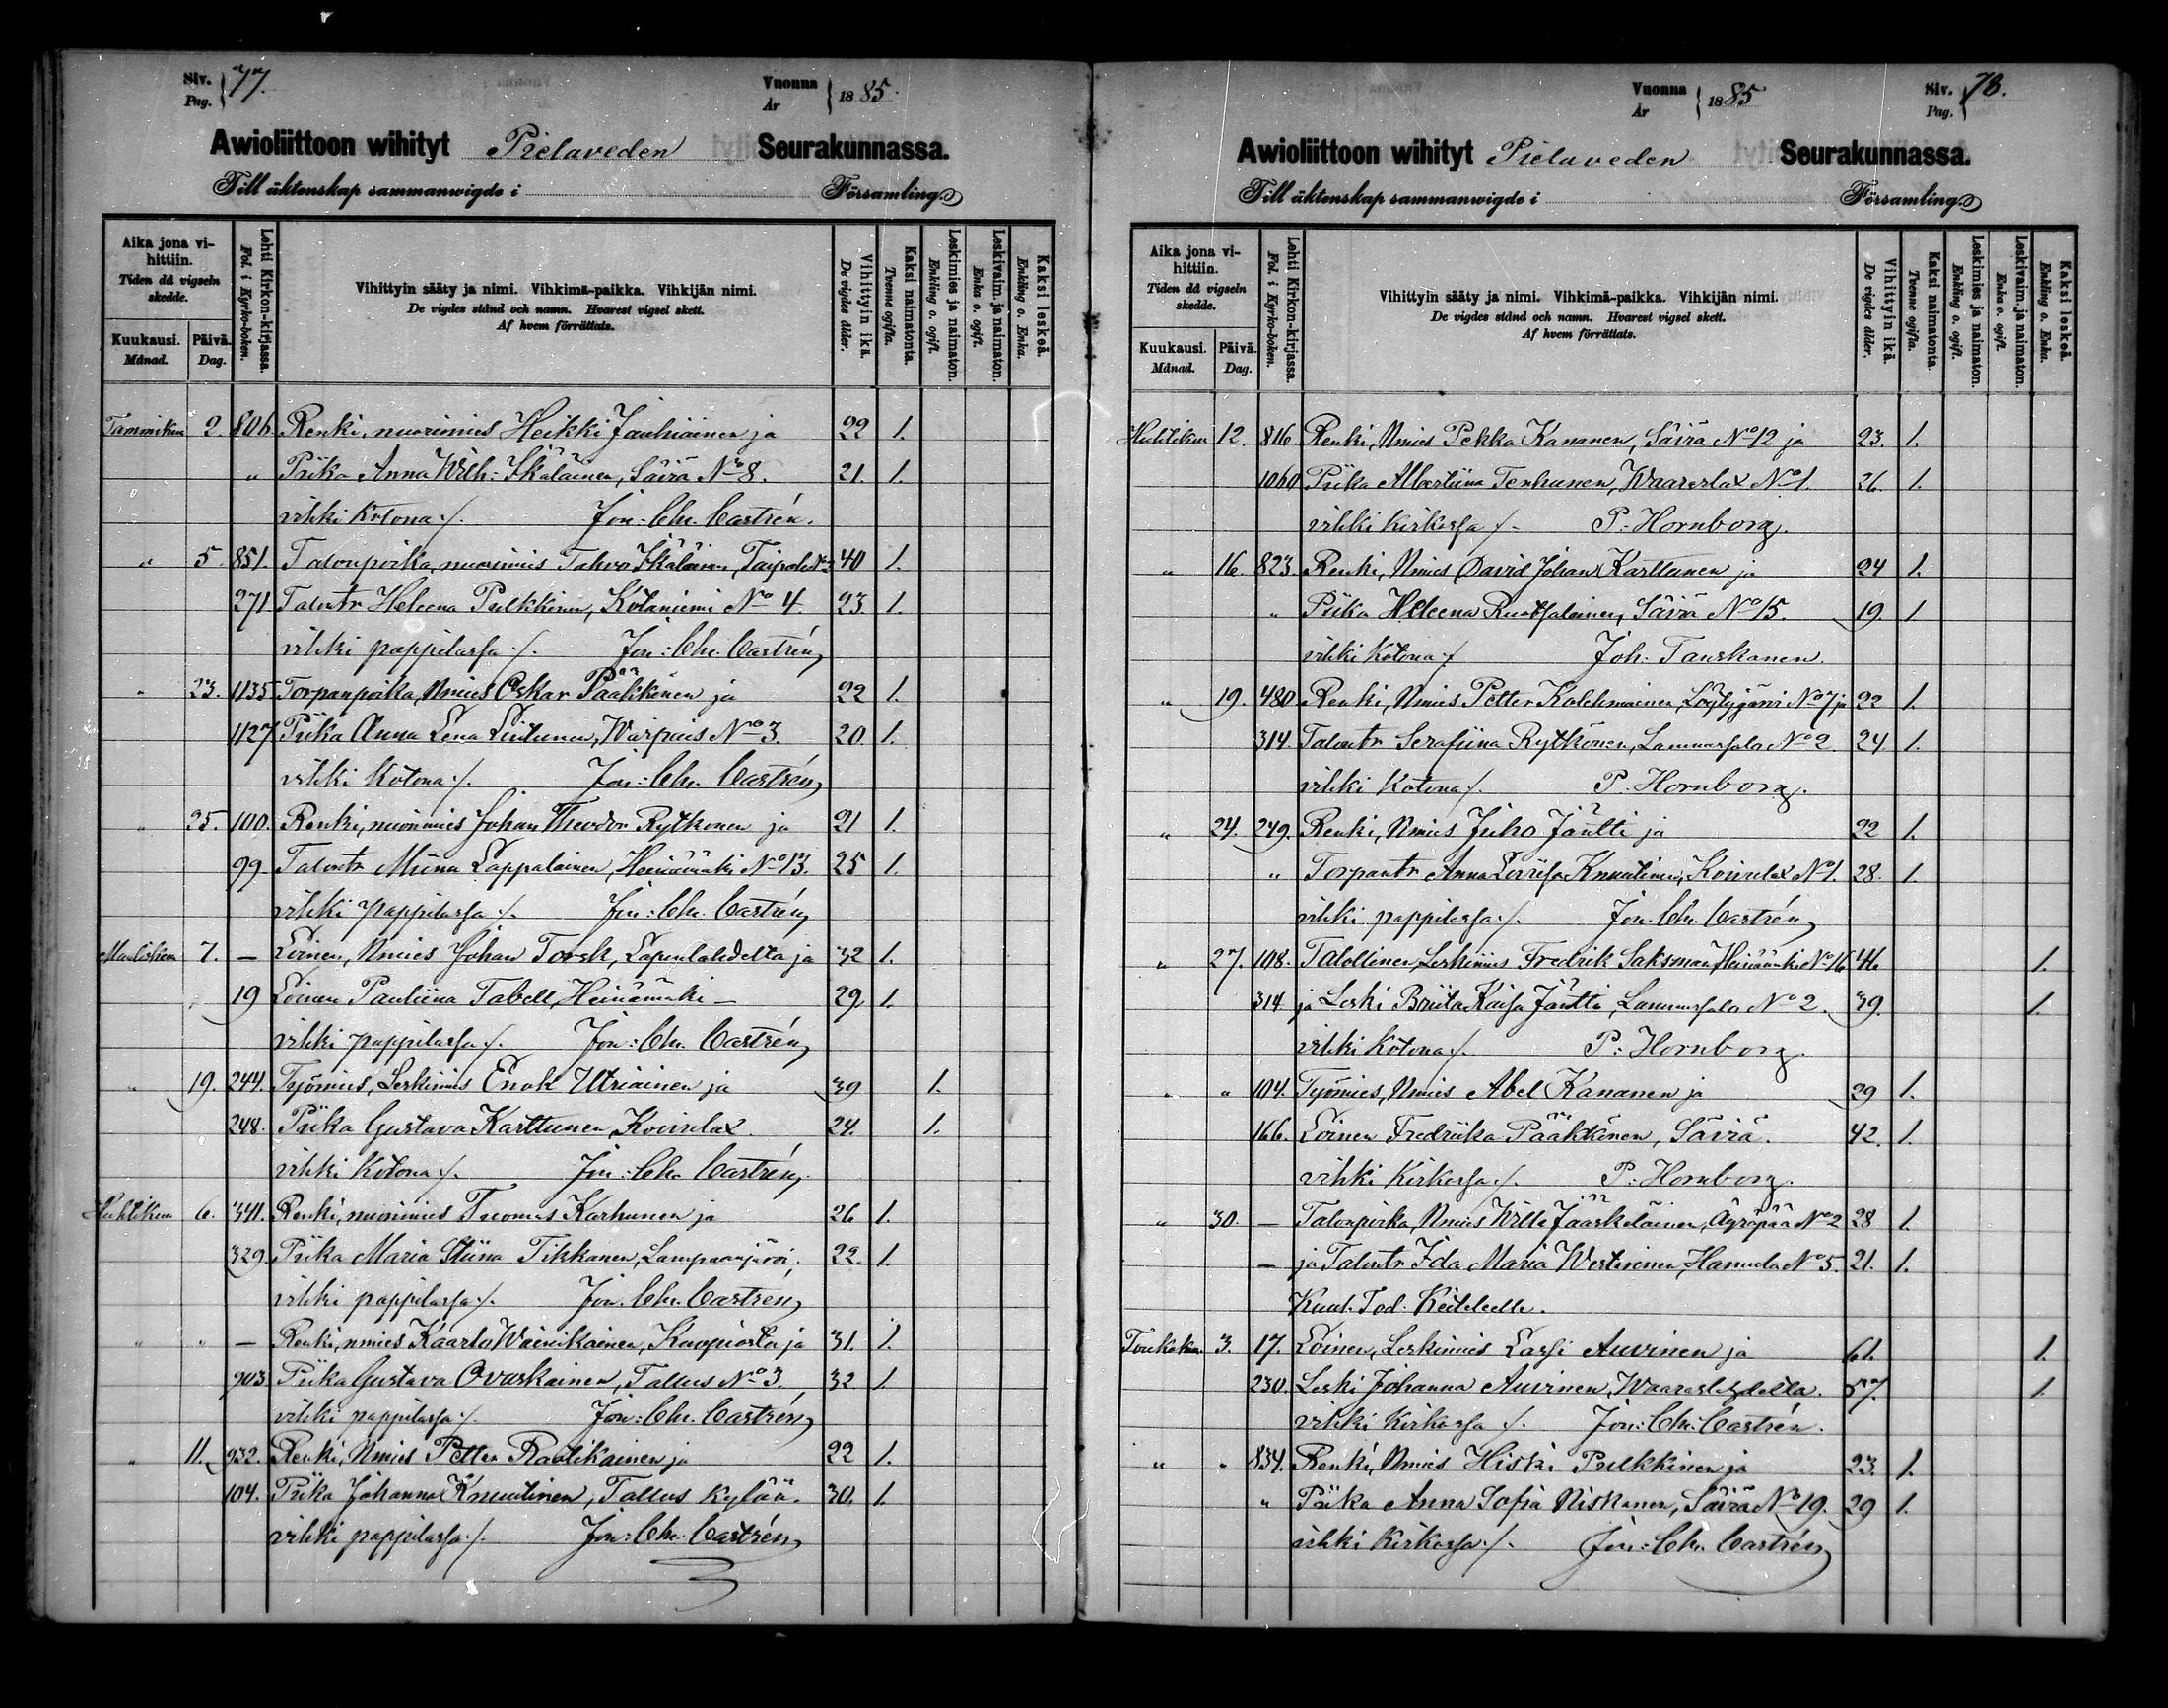 Siv. Pag. } 77.
Vuonna År } 1885.
Awioliittoon wihityt Pielaveden Seurakunnassa.
Till äktenskap sammanwigde i Församling.
Aika jona vihittiin.
Tiden då vigseln skedde.
Kuukausi. Månad.
Päivä. Dag.
Lehti Kirkon-kirjassa.
Fol. i Kyrko-boken.
Vihittyin sääty ja nimi. Vihkimä-paikka. Vihkijän nimi.
De vigdes stånd och namn. Hvarest vigsel skett.
Af hvem förrättats.
Vihittyin ikä.
De vigdes ålder.
Kaksi naimatonta.
Tvenne ogifta.
Leskimies ja naimaton.
Enkling o. ogift.
Leskivaim. ja naimaton.
Enka o. ogift.
Kaksi leskeä.
Enkling o. Enka.
Tammikuu 2. 806. Renki, nuorimies Heikki Jauhiainen ja 22 1.
" Piika Anna Wilh: Ikäläinen, Säviä No 8. 21. 1.
vihki kotona ./. Jon: Chr. Castrén.
" 5. 851. Talonpoika, nuorimies Tahvo Ikäläinen, Taipale No 3 40 1.
271 Talontr Heleena Pulkkinen, Kotaniemi No 4 23 1.
vihki pappilassa ./. Jon: Chr. Castrén
" 23. 1135 Torpanpoika, Nmies Oskar Pääkkönen ja 22 1.
1127 Piika Anna Lena Lintunen, Warpais No 3. 20. 1.
vihki kotona ./. Jon: Chr. Castrén
" 25. 100. Renki, nuorimies Johan Theodor Rytkonen ja 21 1.
99. Talontr Miina Lappalainen, Heinämäki No 13. 25 1.
vihki pappilassa ./. Jon: Chr. Castrén
Maaliskuu 7. — Loinen, Nmies Johan Torsk, Lapinlahdelta ja 32 1.
19 Loinen Pauliina Tabell, Heinämäki — 29. 1.
vihki pappilassa ./. Jon: Chr. Castrén
" 19. 244. Työmies, Leskimies Enok Utriainen ja 39 1.
248. Piika Gustava Karttunen, Koivulax. 24. 1.
vihki kotona ./. Jon: Chr. Castrén
Huhtikuu 6. 341. Renki, nuorimies Tuomas Karhunen ja 26 1.
329. Piika Maria Stiina Tikkanen, Lampaanjärvi. 22. 1.
vihki pappilassa ./. Jon. Chr. Castrén
" " — Renki, nmies Kaarlo Wäinikainen, Kuopiosta ja 31. 1.
903 Piika Gustava Ovaskainen, Tallus No 3. 32. 1.
vihki pappilassa ./. Jon: Chr. Castrén
" 11. 932. Renki, Nmies Petter Rautikainen ja 22 1.
104. Piika Johanna Knuutinen, Tallus kylää. 30. 1.
vihki pappilassa ./. Jon: Chr. Castrén
Vuonna År } 1885
Siv. Pag. } 78.
Awioliittoon wihityt Pielaveden Seurakunnassa.
Till äktenskap sammanwigde i Församling.
Aika jona vihittiin.
Tiden då vigseln skedde.
Kuukausi. Månad.
Päivä. Dag.
Lehti Kirkon-kirjassa.
Fol. i Kyrko-boken.
Vihittyin sääty ja nimi. Vihkimä-paikka. Vihkijän nimi.
De vigdes stånd och namn. Hvarest vigsel skett.
Af hvem förrättats.
Vihittyin ikä.
De vigdes ålder.
Kaksi naimatonta.
Tvenne ogifta.
Leskimies ja naimaton.
Enkling o. ogift.
Leskivaim. ja naimaton.
Enka o. ogift.
Kaksi leskeä.
Enkling o. Enka.
Huhtikuu 12. 816. Renki, Nmies Pekka Kananen, Säviä No 12 ja 23. 1.
1060 Piika Albertiina Tenhunen, Waaraslax No 1. 26. 1.
vihki kirkossa ./. P. Hornborg.
" 16. 823. Renki, Nmies David Johan Karttunen ja 24 1.
" Piika Heleena Ruotsalainen, Säviä No 15. 19. 1
vihki kotona ./. Joh. Tanskanen.
" 19. 480 Renki, Nmies Petter Kolehmainen, Löytyjärvi No 7 ja 22 1.
314. Talontr Serafiina Rytkönen, Lammassalo No 2. 24 1.
vihki kotona ./. P. Hornborg.
" 24. 249. Renki, Nmies Juho Jäntti ja 22 1.
" Torpantr Anna Loviisa Knuutinen, Koivulax No 1. 28. 1.
vihki pappilassa ./. Jon. Chr. Castrén
" 27. 108. Talollinen, Leskimies Fredrik Saksman, Heinämäki No 16 46. 1.
314. ja Leski Briita Kaisa Jäntti, Lammassalo No 2. 39. 1.
vihki kotona ./. P: Hornborg.
" " 104. Työmies, Nmies Abel Kananen ja 29 1.
166. Loinen Fredriika Pääkkönen, Säviä. 42. 1.
vihki kirkossa ./. P: Hornborg.
" 30. — Talonpoika, Nmies Wille Jääskeläinen, Äyräpää No 2 28 1.
— ja Talontr Ida Maria Westerinen, Hamula No 5. 21. 1.
Kuul. Tod. Keiteleelle.
Toukokuu 3. 17. Loinen, Leskimies Lassi Auvinen ja 61. 1.
230. Leski Johanna Auvinen, Waaraslahdelta. 57. 1.
vihki kirkossa ./. Jon: Chr. Castrén.
" " 834. Renki, Nmies Hiski Pulkkinen ja 23. 1.
" Piika Anna Sofia Niskanen, Säviä No 19. 29 1.
vihki kirkossa ./. Jon: Chr. Castrén